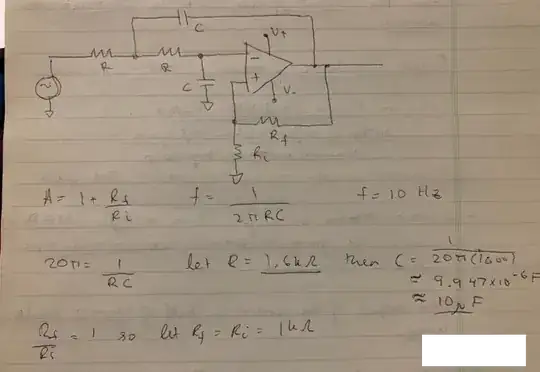 C
V+
R
R
−
+
C
V-
Rf
Ri
A = 1 + Rf/Ri
f = 1/(2πRC)
f = 10 Hz
20π = 1/(RC)
let R = 1.6kΩ
then C = 1/(20π(1600))
≈ 9.947×10^-6 F
≈ 10μF
Rf/Ri = 1 so let Rf = Ri = 1kΩ